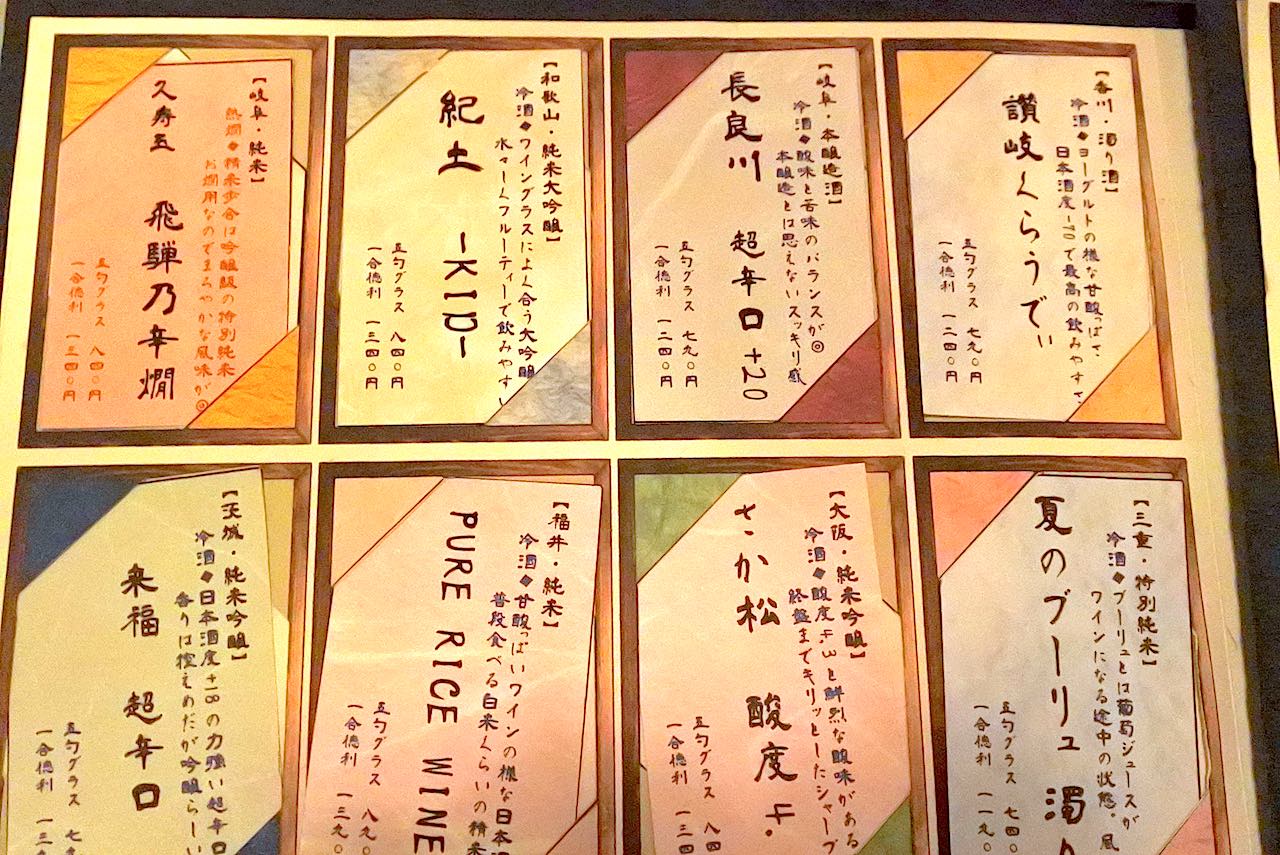 【香川・濁り酒】
冷酒◆ヨーグルトの様な甘酸っぱさ、
日本酒度-70で最高の飲みやすさ、
讃岐くらうでぃ
五勺グラス 七九〇円
一合徳利 一二四〇円
【岐阜・本醸造酒】
冷酒◆酸味と苦味のバランスが◎
本醸造とは思えないスッキリ感
長良川 超辛口+20
五勺グラス 七九〇円
一合徳利 一二四〇円
【和歌山・純米大吟醸】
冷酒◆ワイングラスによく合う大吟醸
水々しくフルーティーで飲みやすい
紀土 -KID-
五勺グラス 八四〇円
一合徳利 一三四〇円
【岐阜・純米】
熱燗◆精米歩合は吟醸級の特別純米
お燗用なのでまろやかな風味が◎
久寿玉 飛騨乃辛燗
五勺グラス 八四〇円
一合徳利 一三四〇円
【三重・特別純米】
冷酒◆ブーリュとは葡萄ジュースが
ワインになる途中の状態。風
夏のブーリュ 濁り
五勺グラス 七四〇
一合徳利 一一九〇
【大阪・純米吟醸】
冷酒◆酸度4.3と鮮烈な酸味がある
終盤までキリッとしたシャープ
さか松 酸度4.
五勺グラス 八四
一合徳利 一三四
【福井・純米】
冷酒◆甘酸っぱいワインの様な日本酒
普段食べる白米くらいの精米
PURE RICE WINE
五勺グラス 八九〇
一合徳利 一三九〇
【茨城・純米吟醸】
冷酒◆日本酒度+18の力強い超辛口
香りは控えめだが吟醸らしい
来福 超辛口
五勺グラス 七
一合徳利 一三